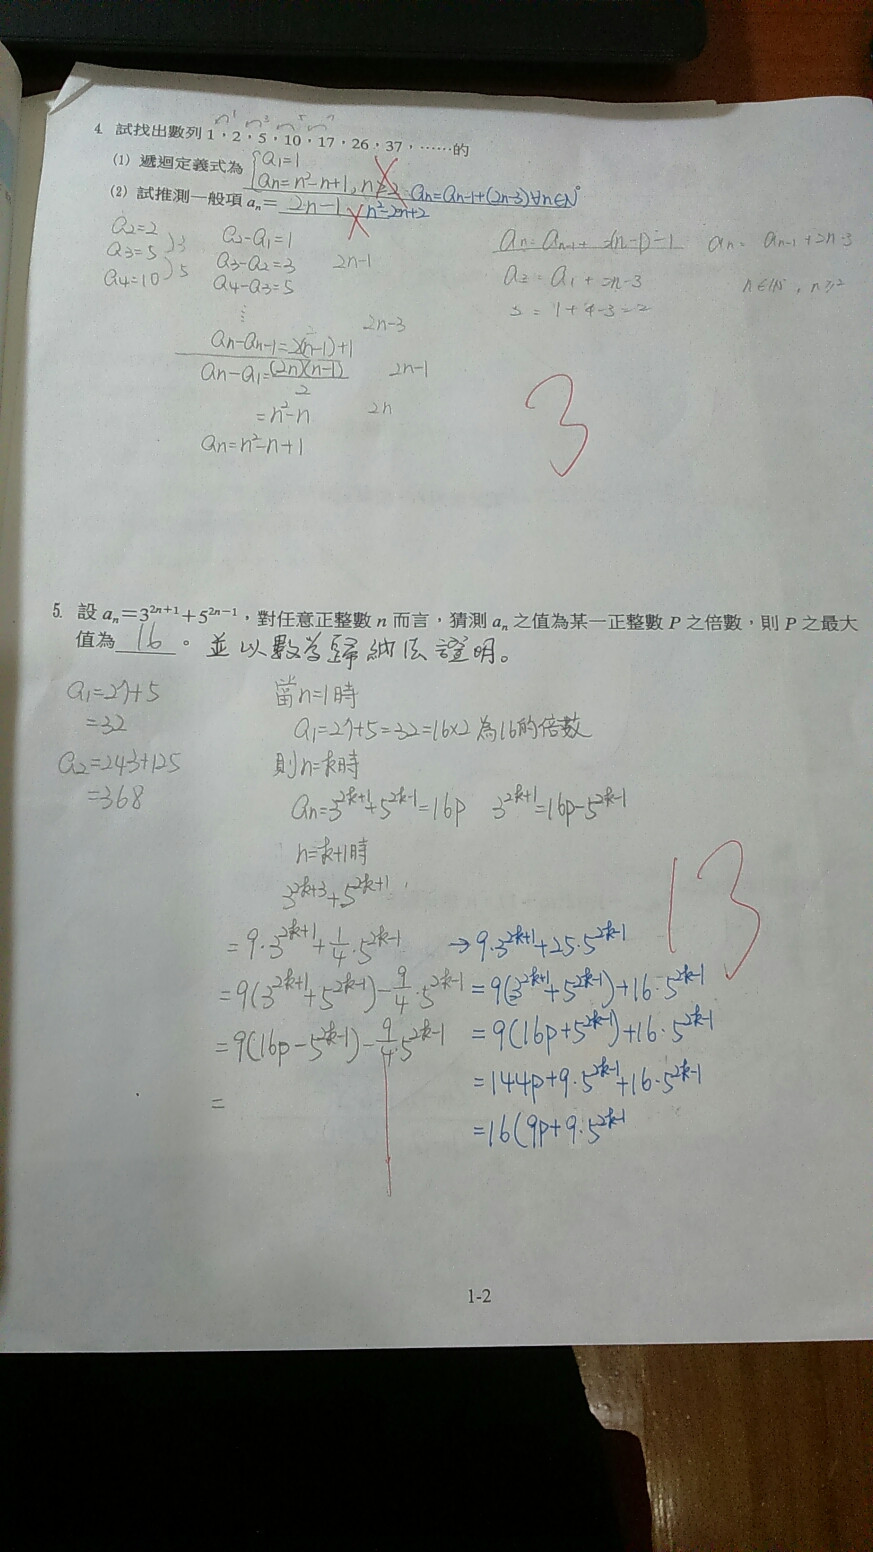 4. 試找出數列 1，2，5，10，17，26，37，……的
(1) 遞迴定義式為 { a₁=1
aₙ=n²-n+1, n≥2 aₙ=aₙ₋₁+(2n-3) ∀n∈N
(2) 試推測一般項 aₙ= 2n-1 n²-2n+2
a₂=2
a₃=5 )3
a₄=10 )5
a₂-a₁=1
a₃-a₂=3 2n-1
a₄-a₃=5
⋮
2n-3
aₙ-aₙ₋₁=2(n-1)+1
aₙ-a₁=(2n)(n-1)/2 2n-1
=n²-n 2n
aₙ=n²-n+1
aₙ= aₙ₋₁+2n-3
a₂=a₁+2n-3
n≥2
3
5. 設 aₙ=3²ⁿ⁺¹+5²ⁿ⁻¹，對任意正整數 n 而言，猜測 aₙ 之值為某一正整數 P 之倍數，則 P 之最大
值為 16 。並以數學歸納法證明。
a₁=27+5
=32
a₂=243+125
=368
當n=1時
a₁=27+5=32=16×2 為16的倍數
則n=k時
aₙ=3^(2k+1)+5^(2k-1)=16p 3^(2k+1)=16p-5^(2k-1)
n=k+1時
3^(2k+3)+5^(2k+1)
=9·3^(2k+1)+1/4·5^(2k-1)
=9(3^(2k+1)+5^(2k-1))-9/4·5^(2k-1)
=9(16p-5^(2k-1))-9/4·5^(2k-1)
=
→9·3^(2k+1)+25·5^(2k-1)
=9(3^(2k+1)+5^(2k-1))+16·5^(2k-1)
=9(16p+5^(2k-1))+16·5^(2k-1)
=144p+9·5^(2k-1)+16·5^(2k-1)
=16(9p+9·5^(2k-1)
13
1-2